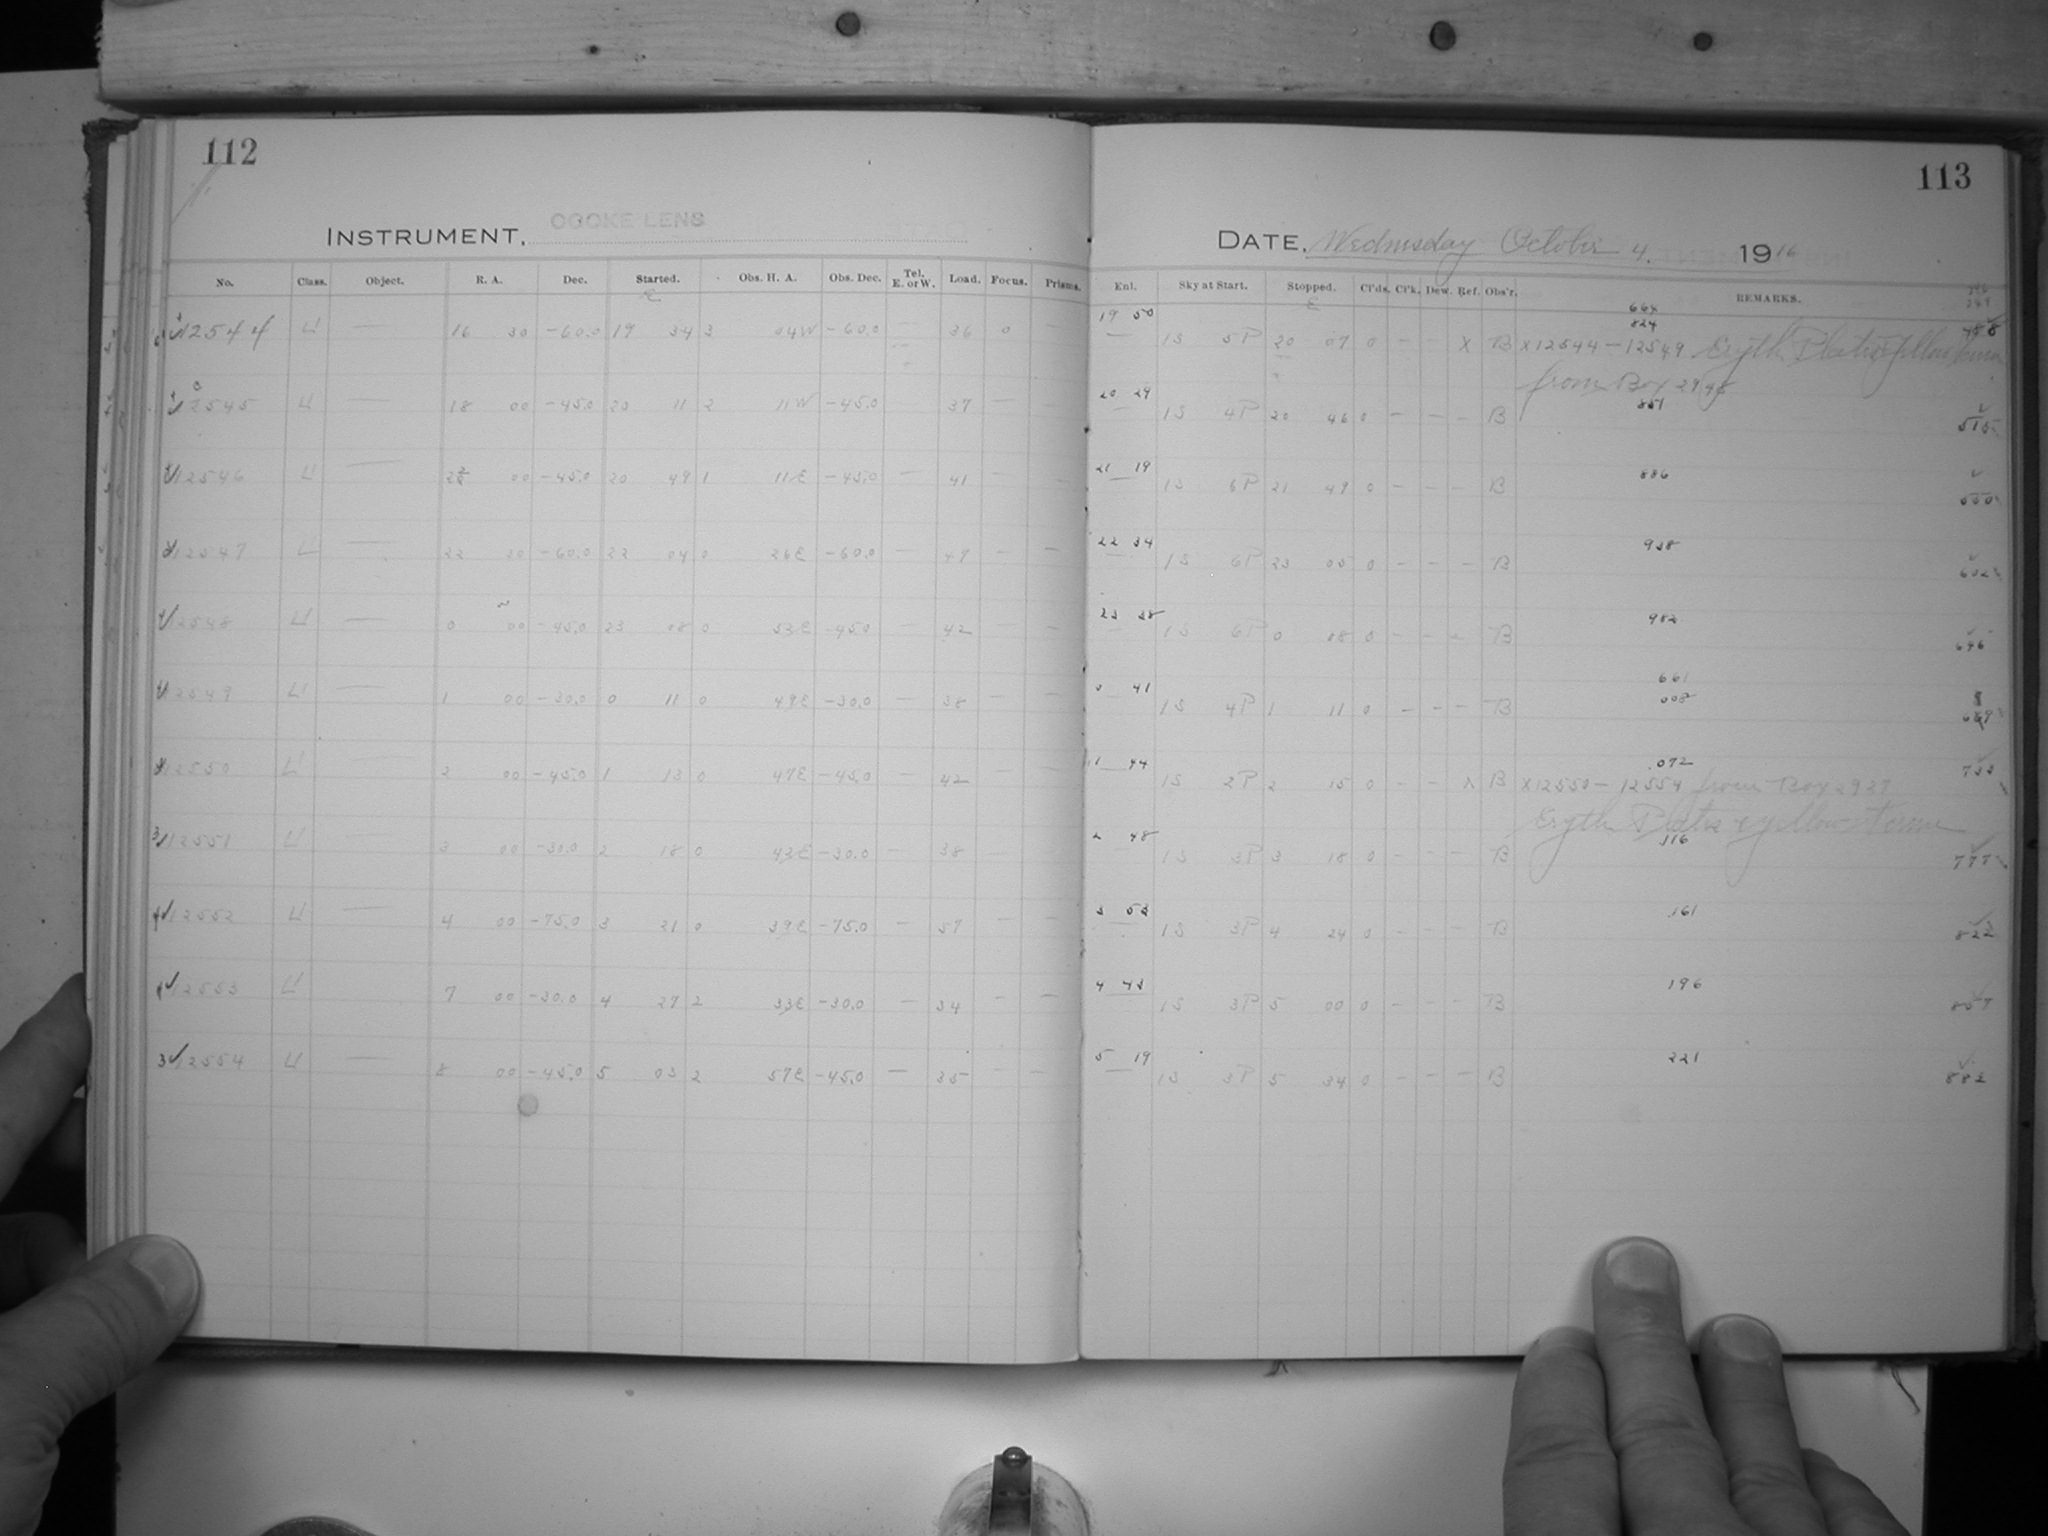 112
113
COOKE LENS
INSTRUMENT,
DATE, Wednesday October 4, 1916
No. Class. Object. R. A. Dec. Started. Obs. H. A. Obs. Dec. Tel. E. or W. Load. Focus. Prisms. Enl. Sky at Start. Stopped. Cl'ds. Cl'k. Dew. Ref. Obs'r. REMARKS.
664
19 50 824
12544 U — 16 30 -60.0 19 34 3 04W -60.0 — 36 0 — 1S 5P 20 07 0 - - X B X12544-12549 Eryth. Plates
from Box
20 29 851
12545 U — 18 00 -45.0 20 11 2 11W -45.0 37 — 1S 4P 20 46 0 - - - B 515
21 19 886
12546 U — 22 00 -45.0 20 49 1 11E -45.0 — 41 — 1S 6P 21 49 0 - - - B 550
22 34 938
12547 U — 22 30 -60.0 22 04 0 26E -60.0 — 49 - - 1S 6P 23 05 0 - - - B 602
23 38 982
12548 U — 0 00 -45.0 23 08 0 53E -45.0 — 42 - - 1S 6P 0 08 0 - - - B 646
661
0 41 008
12549 U — 1 00 -30.0 0 11 0 49E -30.0 — 38 - - 1S 4P 1 11 0 - - - B
1 44 .072 733
12550 U — 2 00 -45.0 1 13 0 47E -45.0 — 42 - - 1S 2P 2 15 0 - - X B X12550-12554 from Box 2927
Eryth Plates
2 48 .116
12551 U — 3 00 -30.0 2 18 0 43E -30.0 - 38 - 1S 3P 3 18 0 - - - B 777
3 53 .161
12552 U — 4 00 -75.0 3 21 0 39E -75.0 — 57 - - 1S 3P 4 24 0 - - - B 822
4 43 196
12553 U 7 00 -30.0 4 27 2 33E -30.0 — 34 - - 1S 3P 5 00 0 - - - B 857
5 19 221
12554 U — 8 00 -45.0 5 03 2 57E -45.0 — 35 - - 1S 3P 5 34 0 - - - B 882